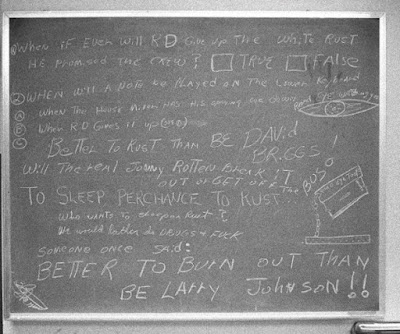 ① When if Ever will R.D Give up The White Rust
He promised The Crew? □ True □ False
② When will a note be played on The Lower Keyboard
Ⓐ When The House Mixer Has His Gammy eye closed
Ⓑ When R.D Gives it up (me)
Ⓒ
Better To Rust Than Be David
Briggs!
Will The real Johnny Rotten Break iT
out or get off The
Bus
To Sleep, Perchance To Rust
Who wants to sleep on Rust?
We would Rather do Drugs &
Someone once said:
Better To Burn Out Than
Be Larry Johnson!!